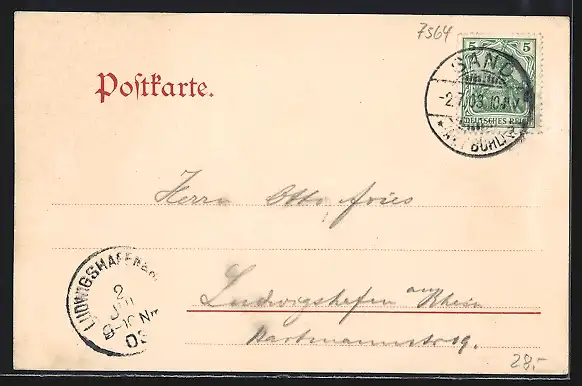 7564
5 5
DEUTSCHES REICH
SAND
-2.7.03.10-11V.
* A.D. BÜHL *
Postkarte.
Herrn Otto Fries
LUDWIGSHAFEN
2
JUL
9-10 Nm
03
Ludwigshafen am Rhein
Hartmannstr. 9.
28,-